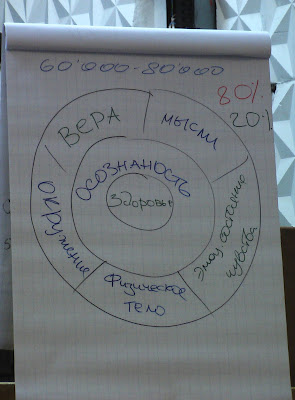 60'000-80'000
80%
20%
ВЕРА
МЫСЛИ
ОСОЗНАНОСТЬ
Здоровье
ОКРУЖЕНИЕ
Эмоц. состояние
чувства
Физическое
ТЕЛО